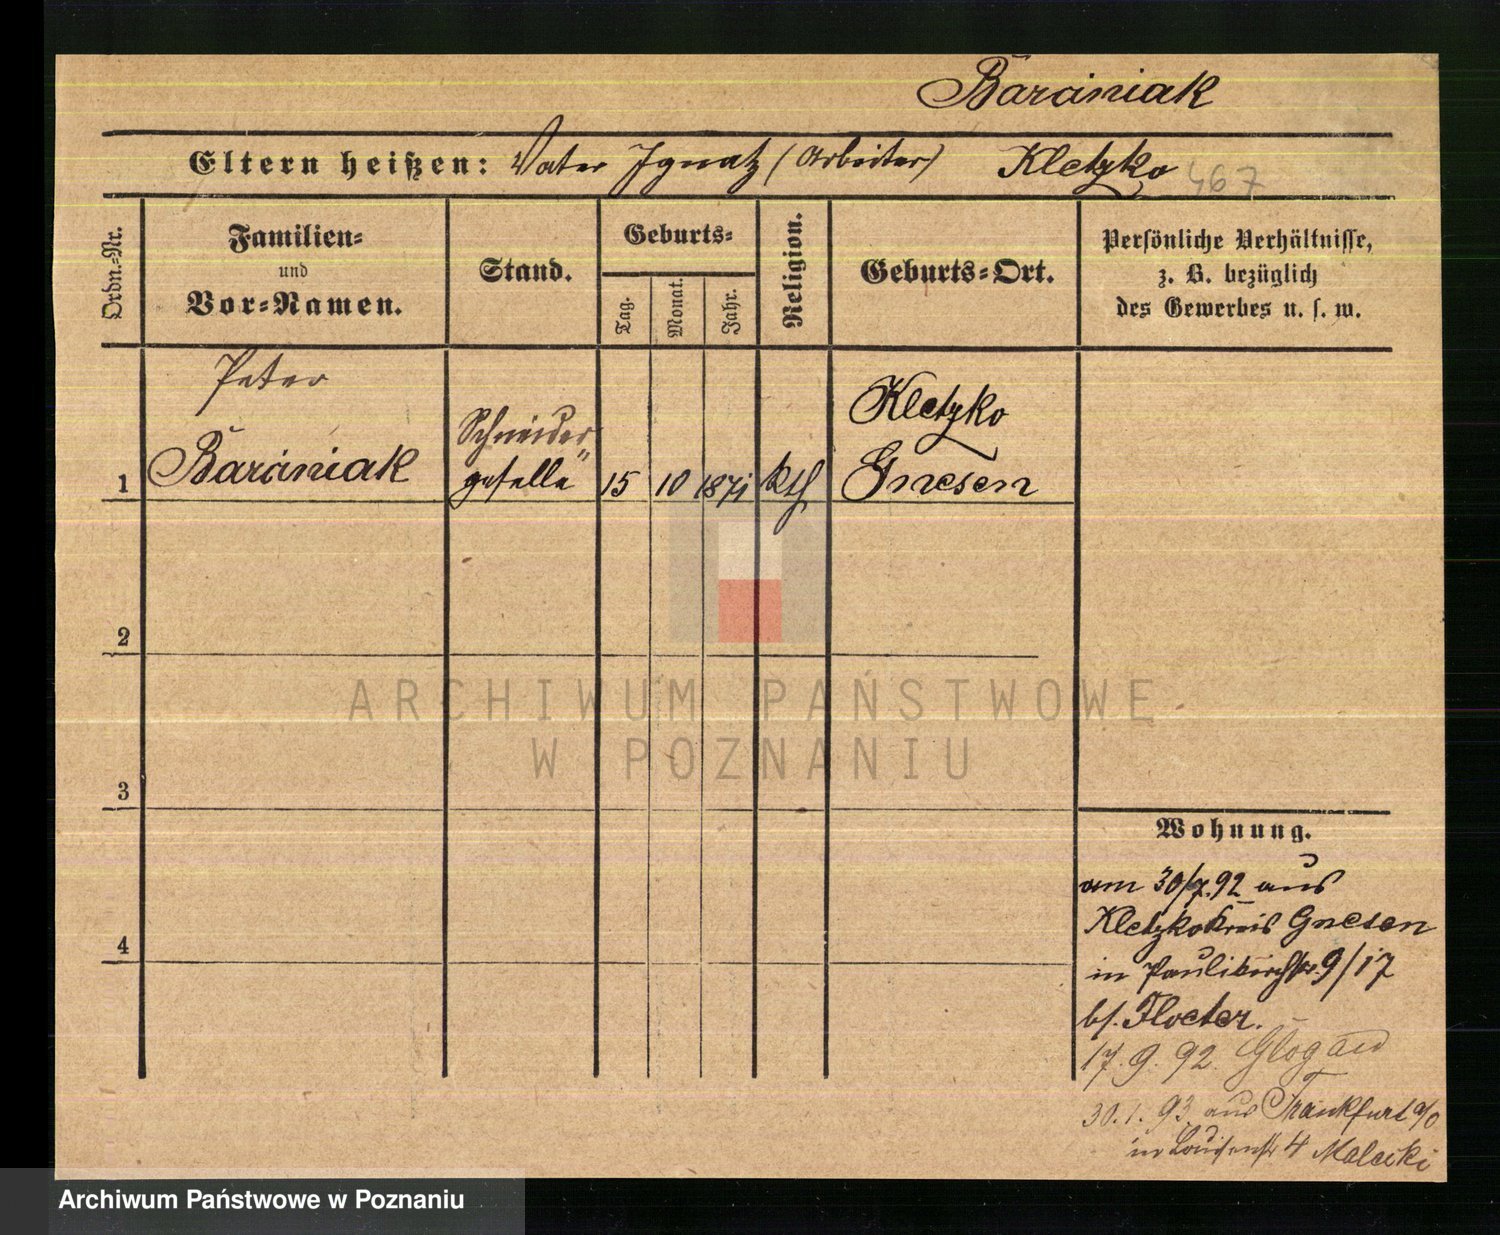 Barciniak
Eltern heißen: Vater Ignatz (Arbeiter) Kletzko 467
Ordn.-Nr.
Familien-
und
Vor-Namen.
Stand.
Geburts-
Tag.
Monat.
Jahr.
Religion.
Geburts-Ort.
Persönliche Verhältnisse,
z. B. bezüglich
des Gewerbes u. s. w.
Peter
1 Barciniak
Schneider
geselle
15 10 1871 kth
Kletzko
Gnesen
2
3
4
ARCHIWUM PAŃSTWOWE
W POZNANIU
Wohnung.
am 30/7.92 aus
Kletzko Kreis Gnesen
in Paulikirchstr. 9/17
b/. Floeter.
17.9.92. Glogau
30.1.93. aus Frankfurt a/O
in Louisenstr 4 Malecki
Archiwum Państwowe w Poznaniu